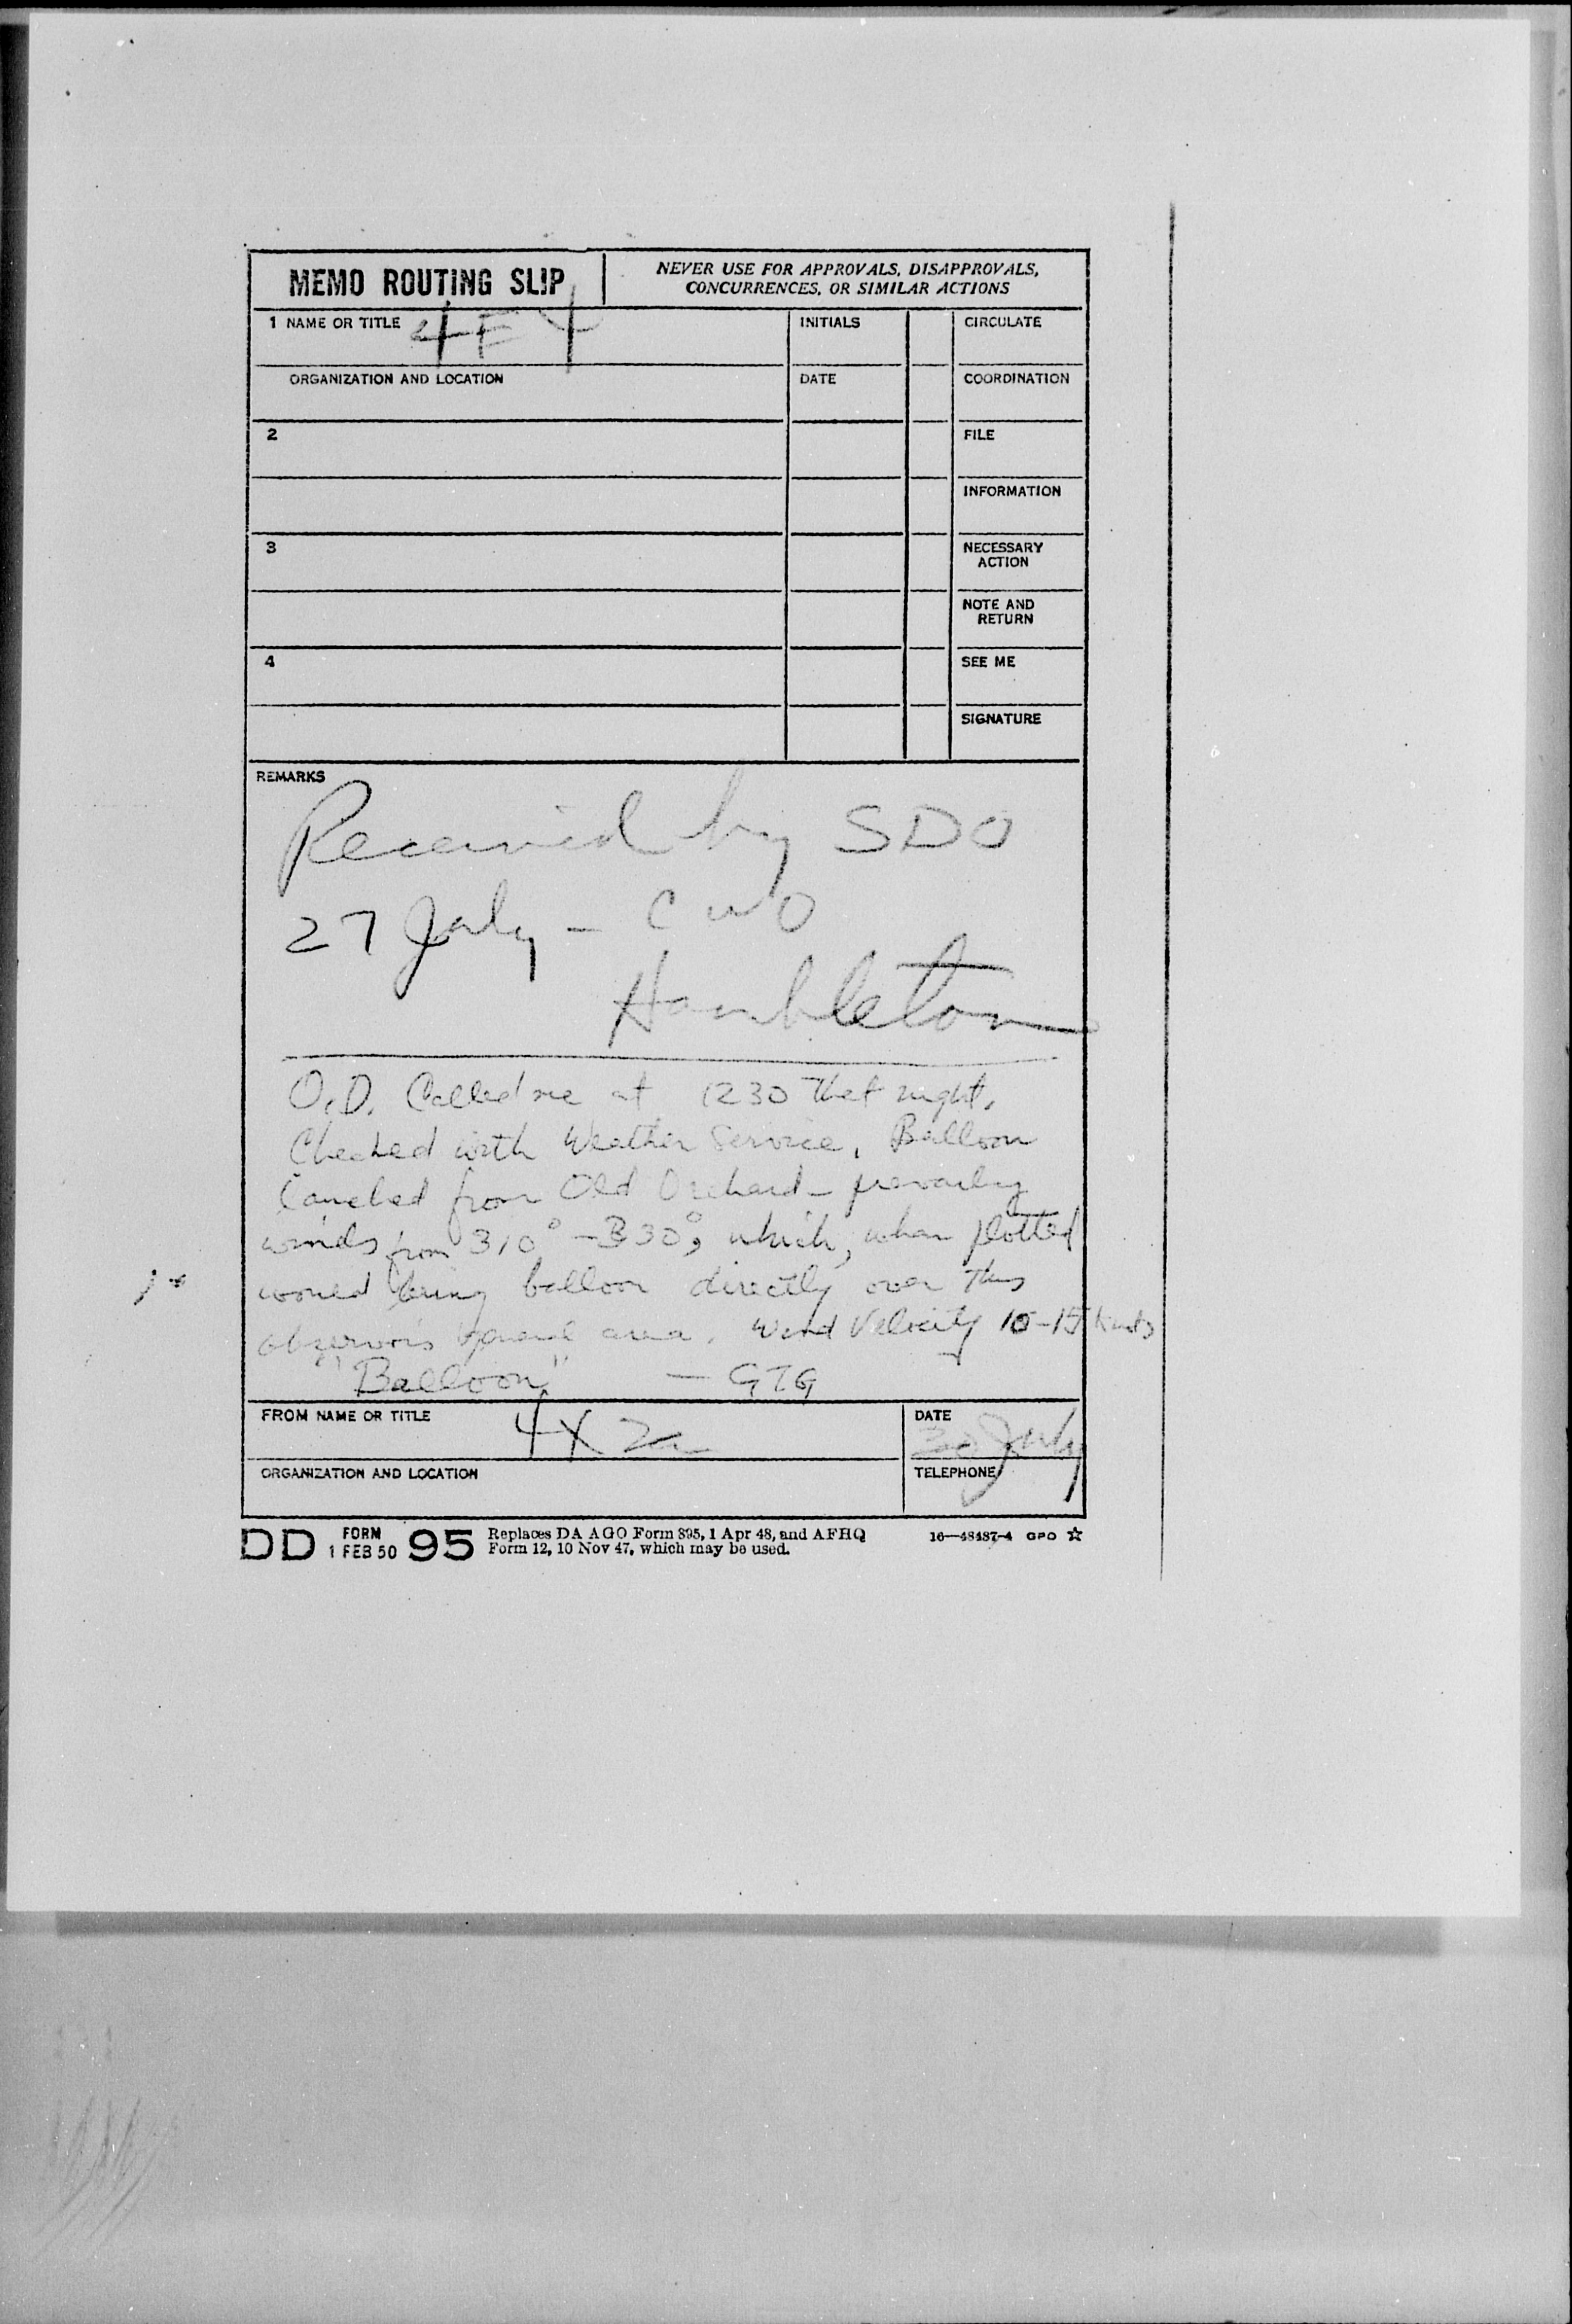 MEMO ROUTING SLIP
NEVER USE FOR APPROVALS, DISAPPROVALS,
CONCURRENCES, OR SIMILAR ACTIONS
1 NAME OR TITLE 4F4
INITIALS
CIRCULATE
ORGANIZATION AND LOCATION
DATE
COORDINATION
2
FILE
INFORMATION
3
NECESSARY
ACTION
NOTE AND
RETURN
4
SEE ME
SIGNATURE
REMARKS
Received by SDO
27 July - CWO
Hambleton
O.D. Called me at 1230 that night.
Checked with Weather Service, Balloon
launched from Old Orchard - prevailing
winds from 310° - 330°, which, when plotted
would bring balloon directly over this
observor's general area. Wind Velocity 10-15 knots
"Balloon" - GTG
FROM NAME OR TITLE 4X2a
DATE
30 July
ORGANIZATION AND LOCATION
TELEPHONE
DD FORM 1 FEB 50 95 Replaces DA AGO Form 895, 1 Apr 48, and AFHQ
Form 12, 10 Nov 47, which may be used.
16—48487-4 GPO ☆